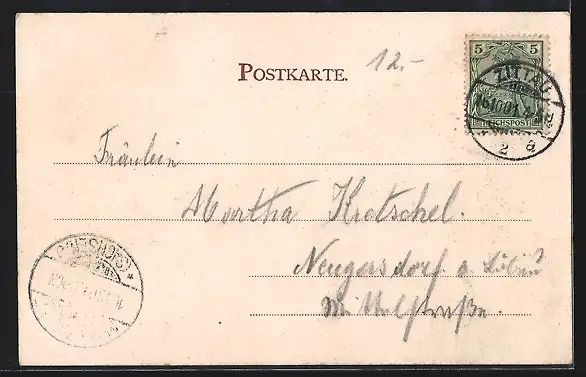 POSTKARTE.
12.-
5 5
REICHSPOST
ZITTAU
2 a
Fräulein
Martha Kretschel.
Neugersdorf a. Löbau